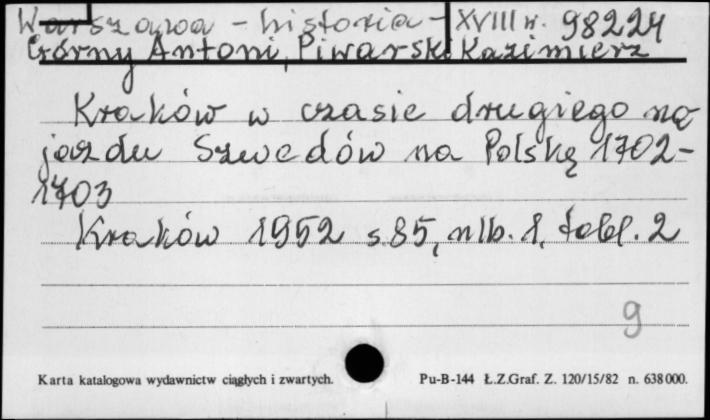 Warszawa - historia - XVIII w. 98224
Górny Antoni, Piwarski Kazimierz
Kraków w czasie drugiego na
jazdu Szwedów na Polskę 1702-
1703
Kraków 1952 s.85, nlb. 1, tabl. 2
9
Karta katalogowa wydawnictw ciągłych i zwartych. Pu-B-144 Ł.Z.Graf. Z. 120/15/82 n. 638000.